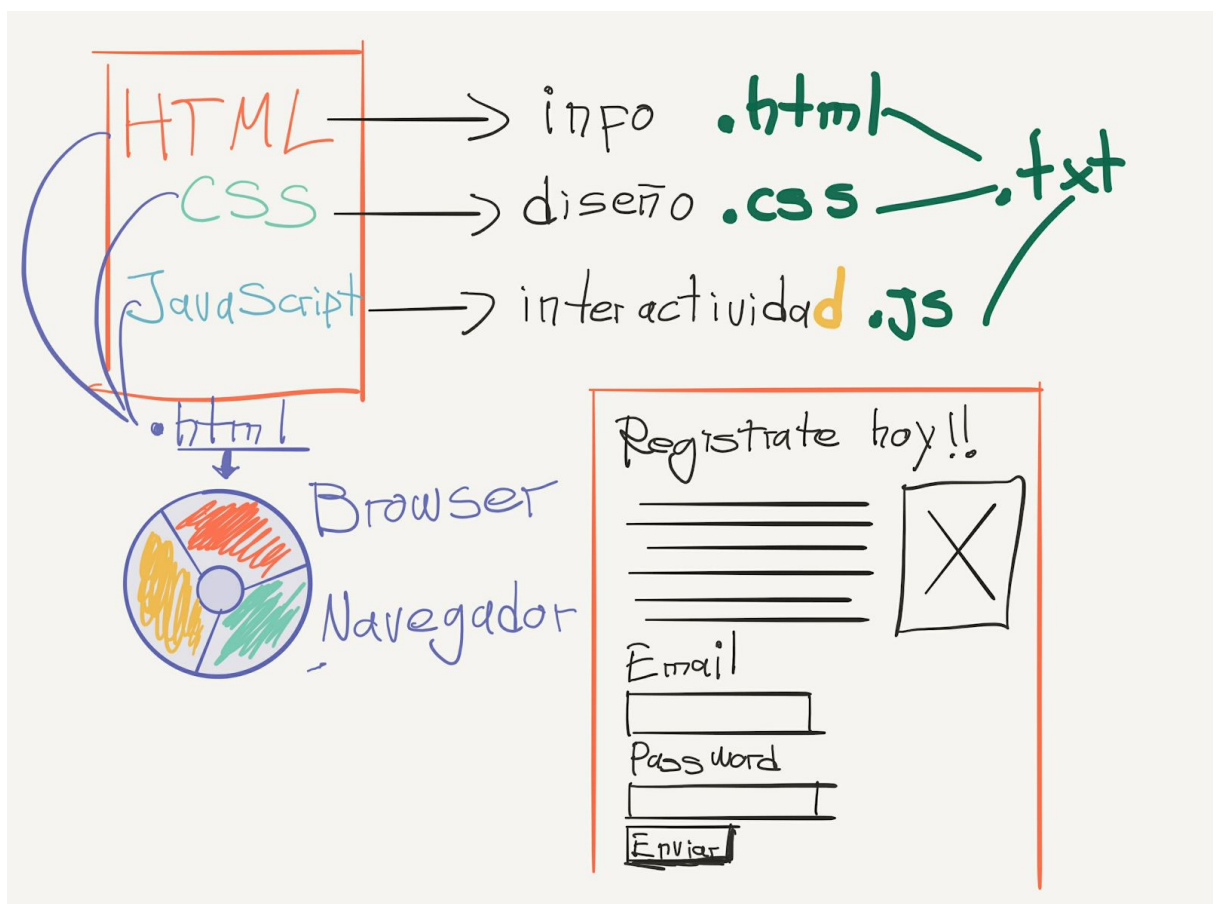 HTML → info .html
CSS → diseño .css .txt
JavaScript → interactividad .JS
.html
Browser
Navegador
Registrate hoy!!
Email
Password
Enviar